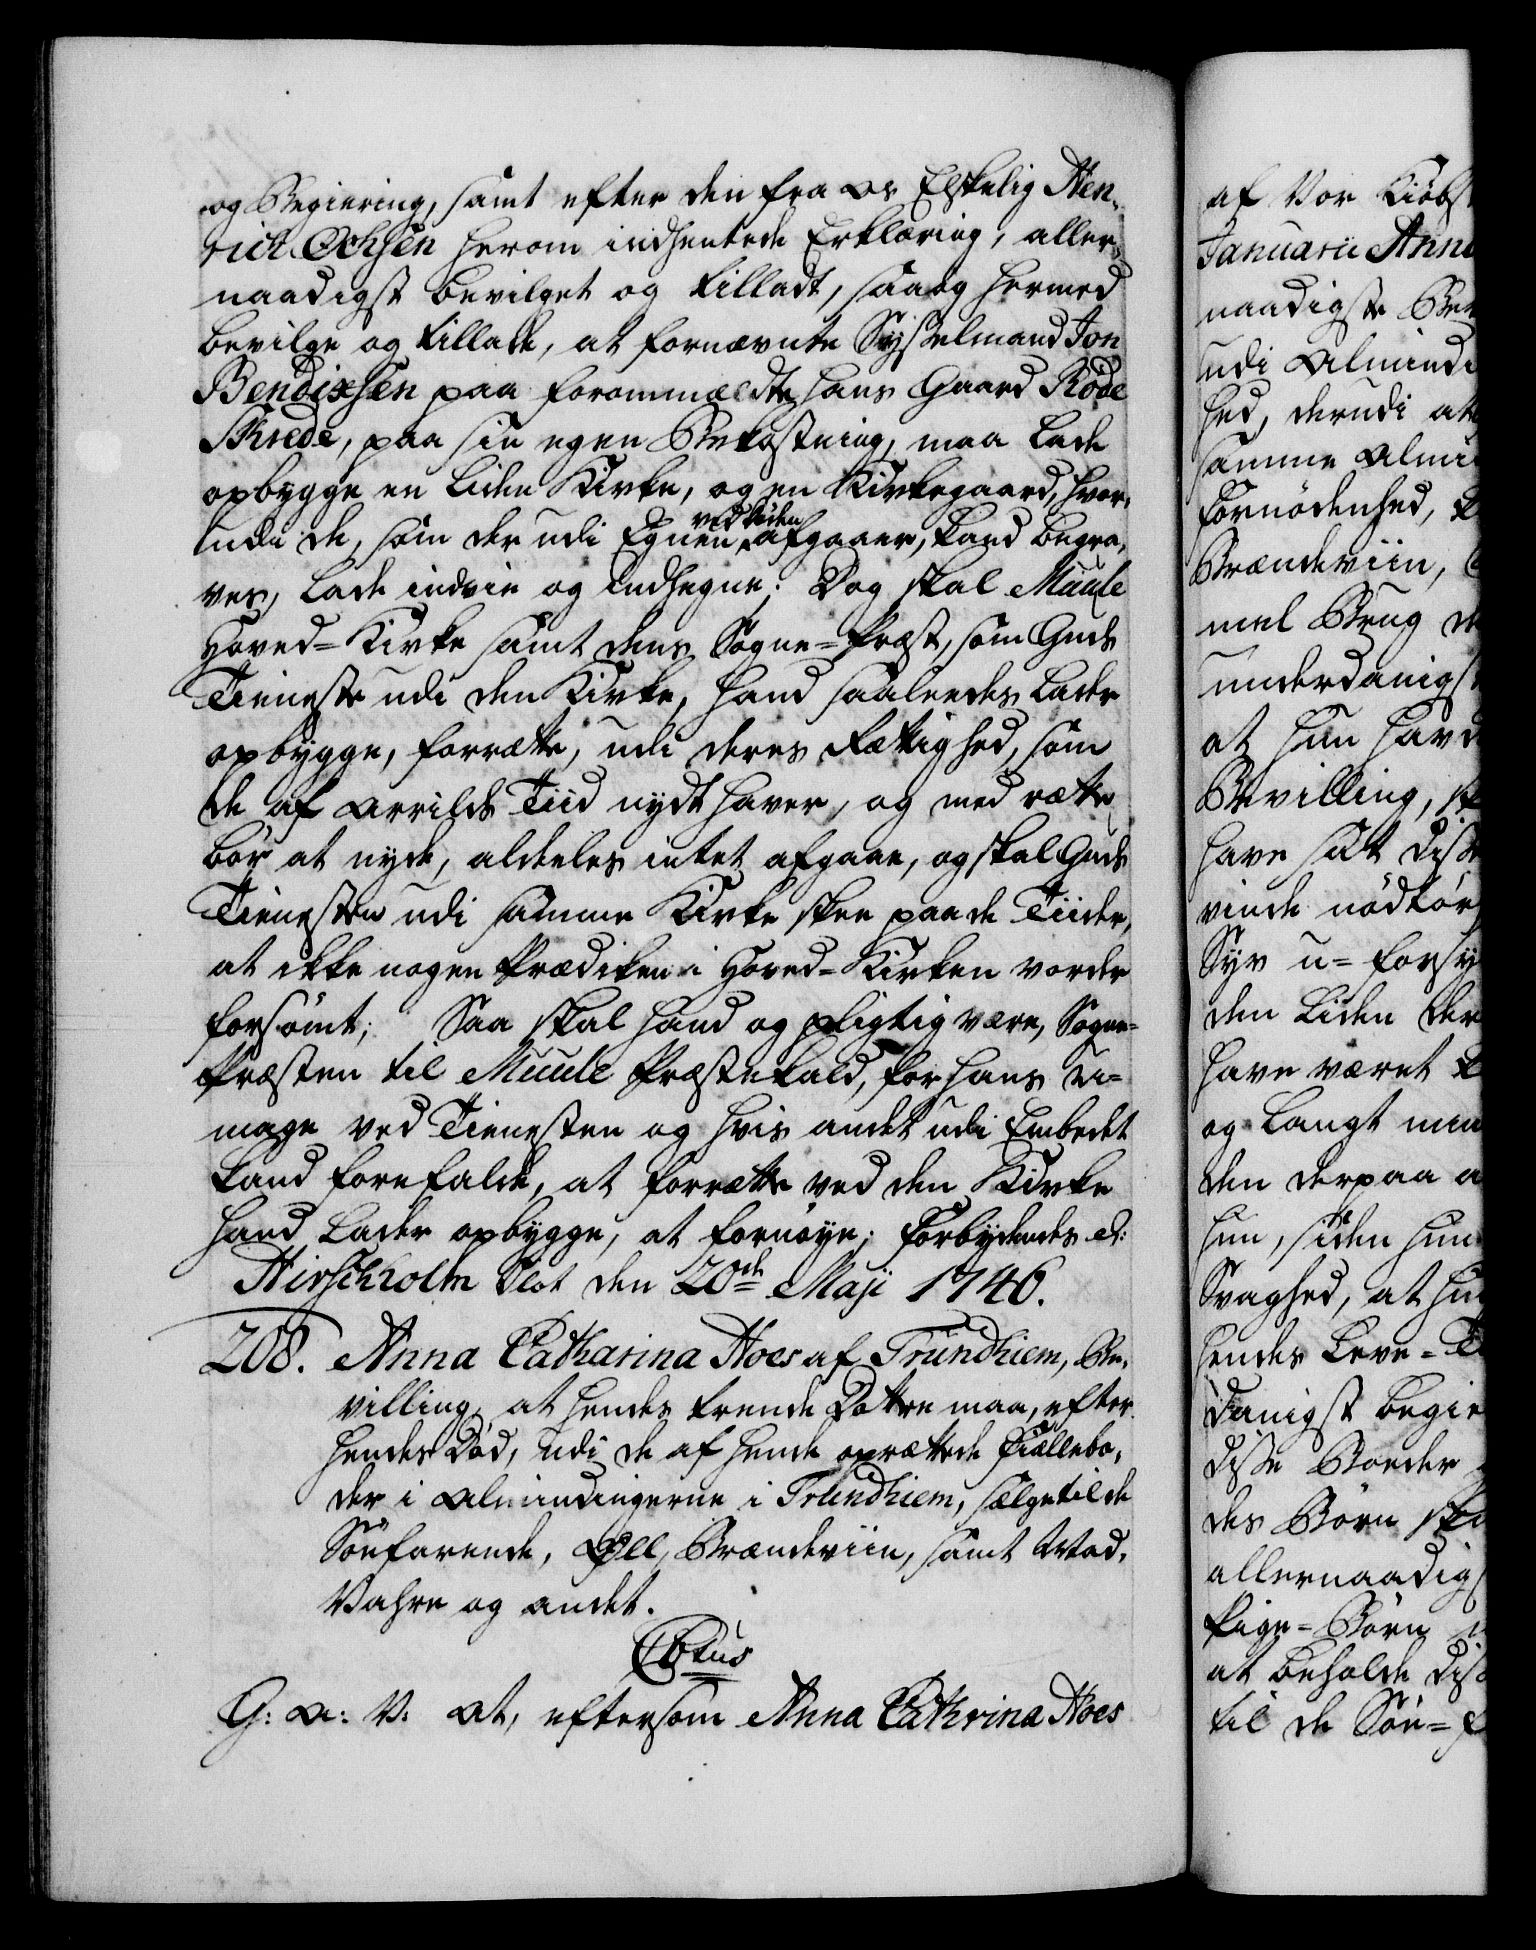 og Begiering, samt efter den fra os Elskelig Hen-
rich Ochsen herom indhentede Erklæring, aller-
naadigst bevilget og tilladt, saa og hermed
bevilge og tillade, at fornævnte Sysselmand Jon
Bendixsen paa forommældte hans Gaard Röde
Skrede, paa sin egen Bekostning, maa lade
opbygge en liden Kirke, og en Kirkegaard, hvor-
udi de, som der udi Egnen ved döden afgaaer, kand begra-
ves, lade indvie og indhegne; Dog skal Muule
Hoved-Kirke samt dens Sogne-Præst, som Guds
Tieneste udi den Kirke, hand saaledes lader
opbygge, forrætte, udi deres Rættighed, som
de af Arrilds Tiid nydt haver, og med rætte
bör at nyde, aldeeles intet afgaae, og skal Guds
Tienesten udi samme Kirke skee paa de Tiider,
at ikke nogen Prædiken i Hoved-Kirken vorder
forsömt; Saa skal hand og pligtig være, Sogne-
Præsten til Muule Præstekald, for hans U-
mage ved Tienesten og hvis andet udi Embedet
kand forefalde, at forrætte ved den Kirke
hand lader opbygge, at fornöye; Forbydendes et:
Hirschholm Slot den 20de Maji 1746.
208. Anna Catharina Hoes af Trundhiem, Be-
villing, at hendes trende Döttre maa, efter
hendes Död, udi de af hende oprættede Fiællebo-
der i Almindingerne i Trundhiem, sælge til de
Söefarende, Öll, Brændeviin, samt Mad-
Vahre og andet.
C6tus
G: A: V: At, eftersom Anna Cathrina Hoes
af Vor Kiöbst
Januarii Anno
naadigste Be
udi Almindi
hed, derudi at
samme Almi
fornödenhed,
Brændeviin,
mel Brug
underdanigst
at hun havd
Bevilling,
have sat disse
vinde nödtör
Syv u-forsy
den liden der
have været
og langt min
den derpaa a
hun, siden hun
Svaghed, at hu
hendes Leve-T
danigst begie
disse Boeder
des Börn
allernaadigst
Pige-Börn
at beholde diss
til de Söe-f